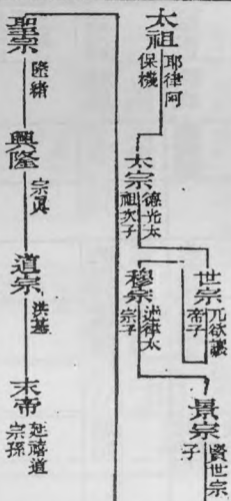 太祖
耶律阿
保機
太宗
德光太
祖次子
世宗
兀欲讓
帝子
穆宗
述律太
宗子
景宗
賢世宗
子
聖宗
隆緒
興隆
宗眞
道宗
洪基
末帝
延禧道
宗孫